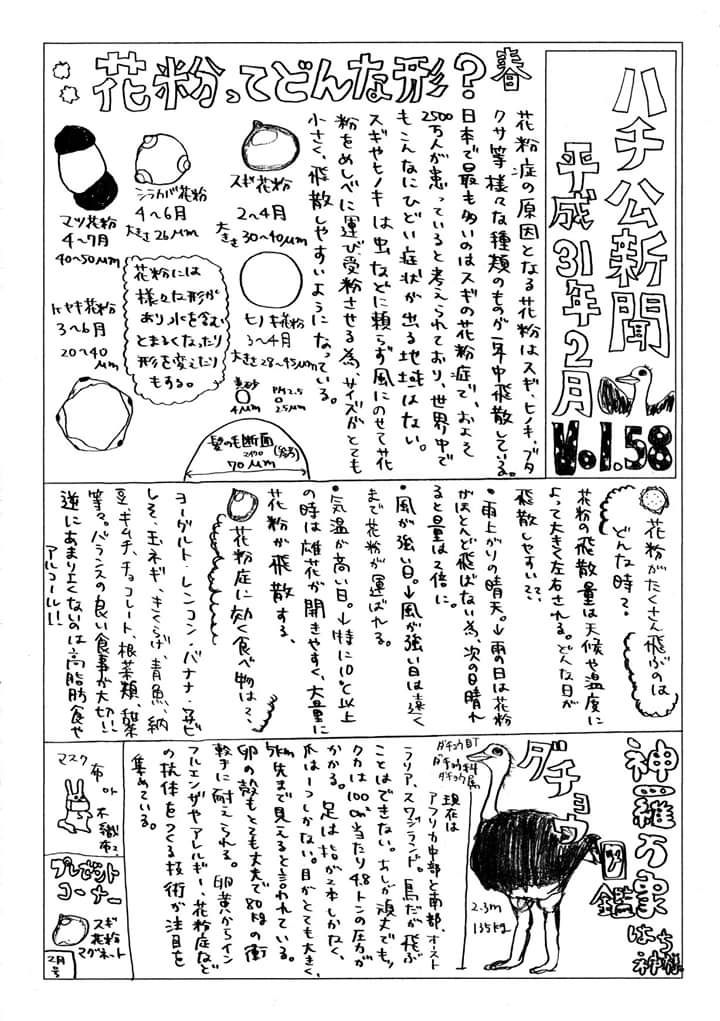 ハチ公新聞
平成31年2月
Vol.58
春
花粉ってどんな形?
花粉症の原因となる花粉はスギ、ヒノキ、ブタ
クサ等様々な種類のものが一年中飛散している。
日本で最も多いのはスギの花粉症で、およそ
2500万人が患っていると考えられており、世界中で
もこんなにひどい症状が出る地域はない。
スギやヒノキは虫などに頼らず風にのせて花
粉をめしべに運び受粉させる為、サイズがとても
小さく、飛散しやすいようになっている。
スギ花粉
2〜4月
大きさ30〜40μm
シラカバ花粉
4〜6月
大きさ26μm
マツ花粉
4〜7月
40〜50μm
ヒノキ花粉
3〜4月
大きさ28〜45μm
花粉には
様々な形が
あり、水を含む
とまるくなったり
形を変えたり
もする。
ケヤキ花粉
3〜6月
20〜40μm
黄砂
4μm
PM2.5
2.5μm
髪の毛断面(参考)
70μm
花粉がたくさん飛ぶのは
どんな時?
花粉の飛散量は天候や温度に
よって大きく左右される。どんな日が
飛散しやすいて、
・雨上がりの晴天。→雨の日は花粉
がほとんど飛ばない為、次の日晴れ
ると量は2倍に。
・風が強い日。→風が強い日は遠く
まで花粉が運ばれる。
・気温が高い日。→特に10℃以上
の時は雄花が開きやすく、大量に
花粉が飛散する。
花粉症に効く食べ物は?
ヨーグルト・レンコン・バナナ・エビ
しそ、玉ネギ、きくらげ、青魚、納
豆、キムチ、チョコレート、根菜類、甜茶
等々。バランスの良い食事が大切!!
逆にあまりよくないのは高脂肪食や
アルコール!!
神羅万象
図鑑
はち神様
ダチョウ
ダチョウ目
ダチョウ科
ダチョウ属
2.3m
135kg
現在は
アフリカ中部と南部、オースト
ラリア、スワジランド。鳥だが飛ぶ
ことはできない。あしが頑丈でキッ
クカは100cm²当たり4.8トンの圧力が
かかる。足は指が2本しかなく、
爪は一つしかない。目がとても大きく、
5km先まで見えると言われている。
卵の殻もとても丈夫で80kgの衝
撃に耐えられる。卵黄からイン
フルエンザやアレルギー、花粉症など
の抗体をつくる技術が注目を
集めている。
マスク
布
or
不織布?
プレゼント
コーナー
スギ
花粉
マグネット
2月号